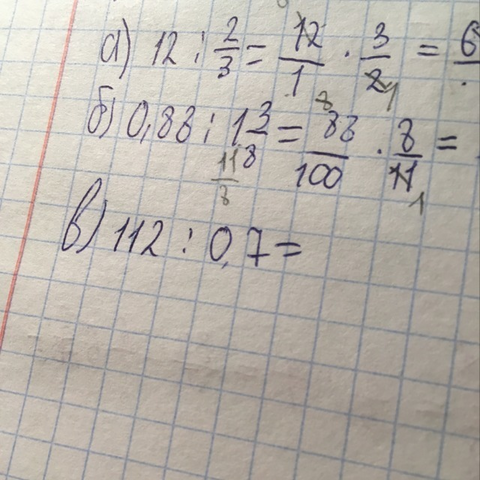 а) 12 : 2/3 = 12/1 · 3/2 1 = 6/
б) 0,88 : 1 3/8 = 8 88/100 · 8/11 1 =
11/8
в) 112 : 0,7 =